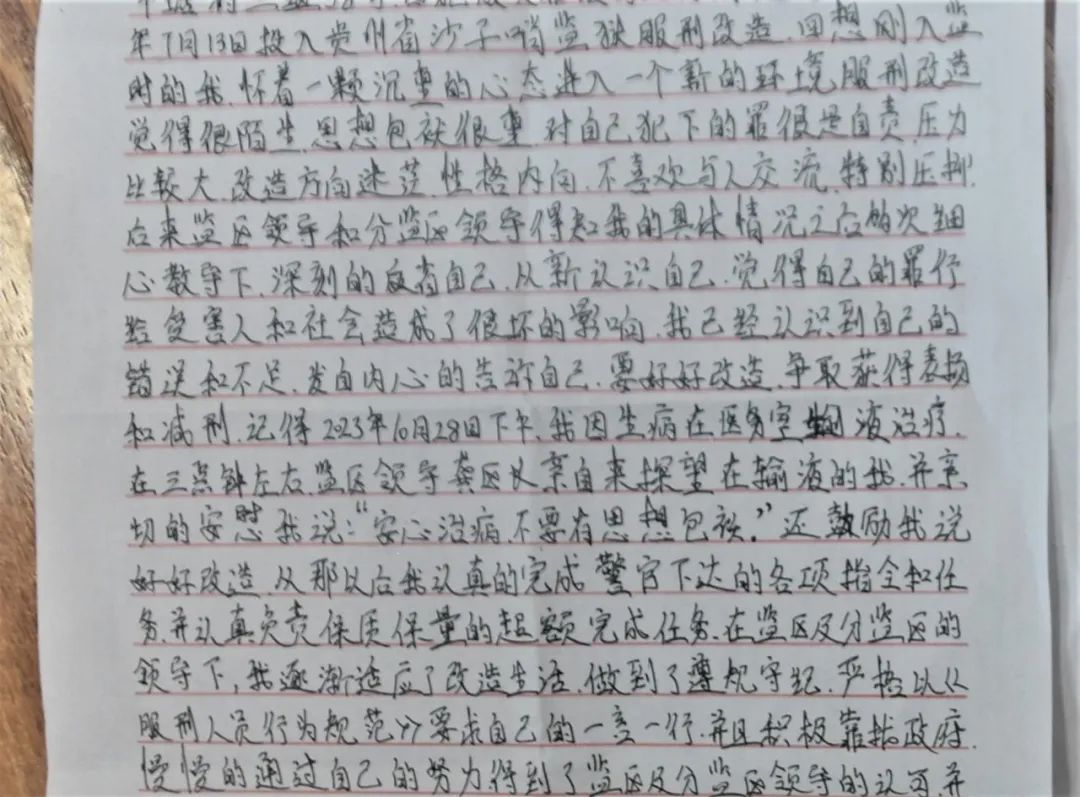 年7月13日投入贵州省沙子哨监狱服刑改造,回想刚入监
时的我,怀着一颗沉重的心态进入一个新的环境服刑改造
觉得很陌生,思想包袱很重,对自己犯下的罪很是自责,压力
比较大,改造方向迷茫,性格内向,不喜欢与人交流,特别压抑,
后来监区领导和分监区领导得知我的具体情况之后的次细
心教导下,深刻的反省自己,从新认识自己,觉得自己的罪行
给受害人和社会造成了很坏的影响,我已经认识到自己的
错误和不足,发自内心的告诉自己,要好好改造,争取获得表扬
和减刑,记得2023年10月28日下午,我因生病在医务室输液治疗,
在三点钟左右,监区领导龚区长亲自来探望在输液的我,并亲
切的安慰我说:“安心治病,不要有思想包袱。”还鼓励我说
好好改造,从那以后我认真的完成警官下达的各项指令和任
务,并认真负责保质保量的超额完成任务,在监区及分监区的
领导下,我逐渐适应了改造生活,做到了遵规守纪,严格以《
服刑人员行为规范》要求自己的一言一行,并且积极靠拢政府,
慢慢的通过自己的努力得到了监区及分监区领导的认可,并